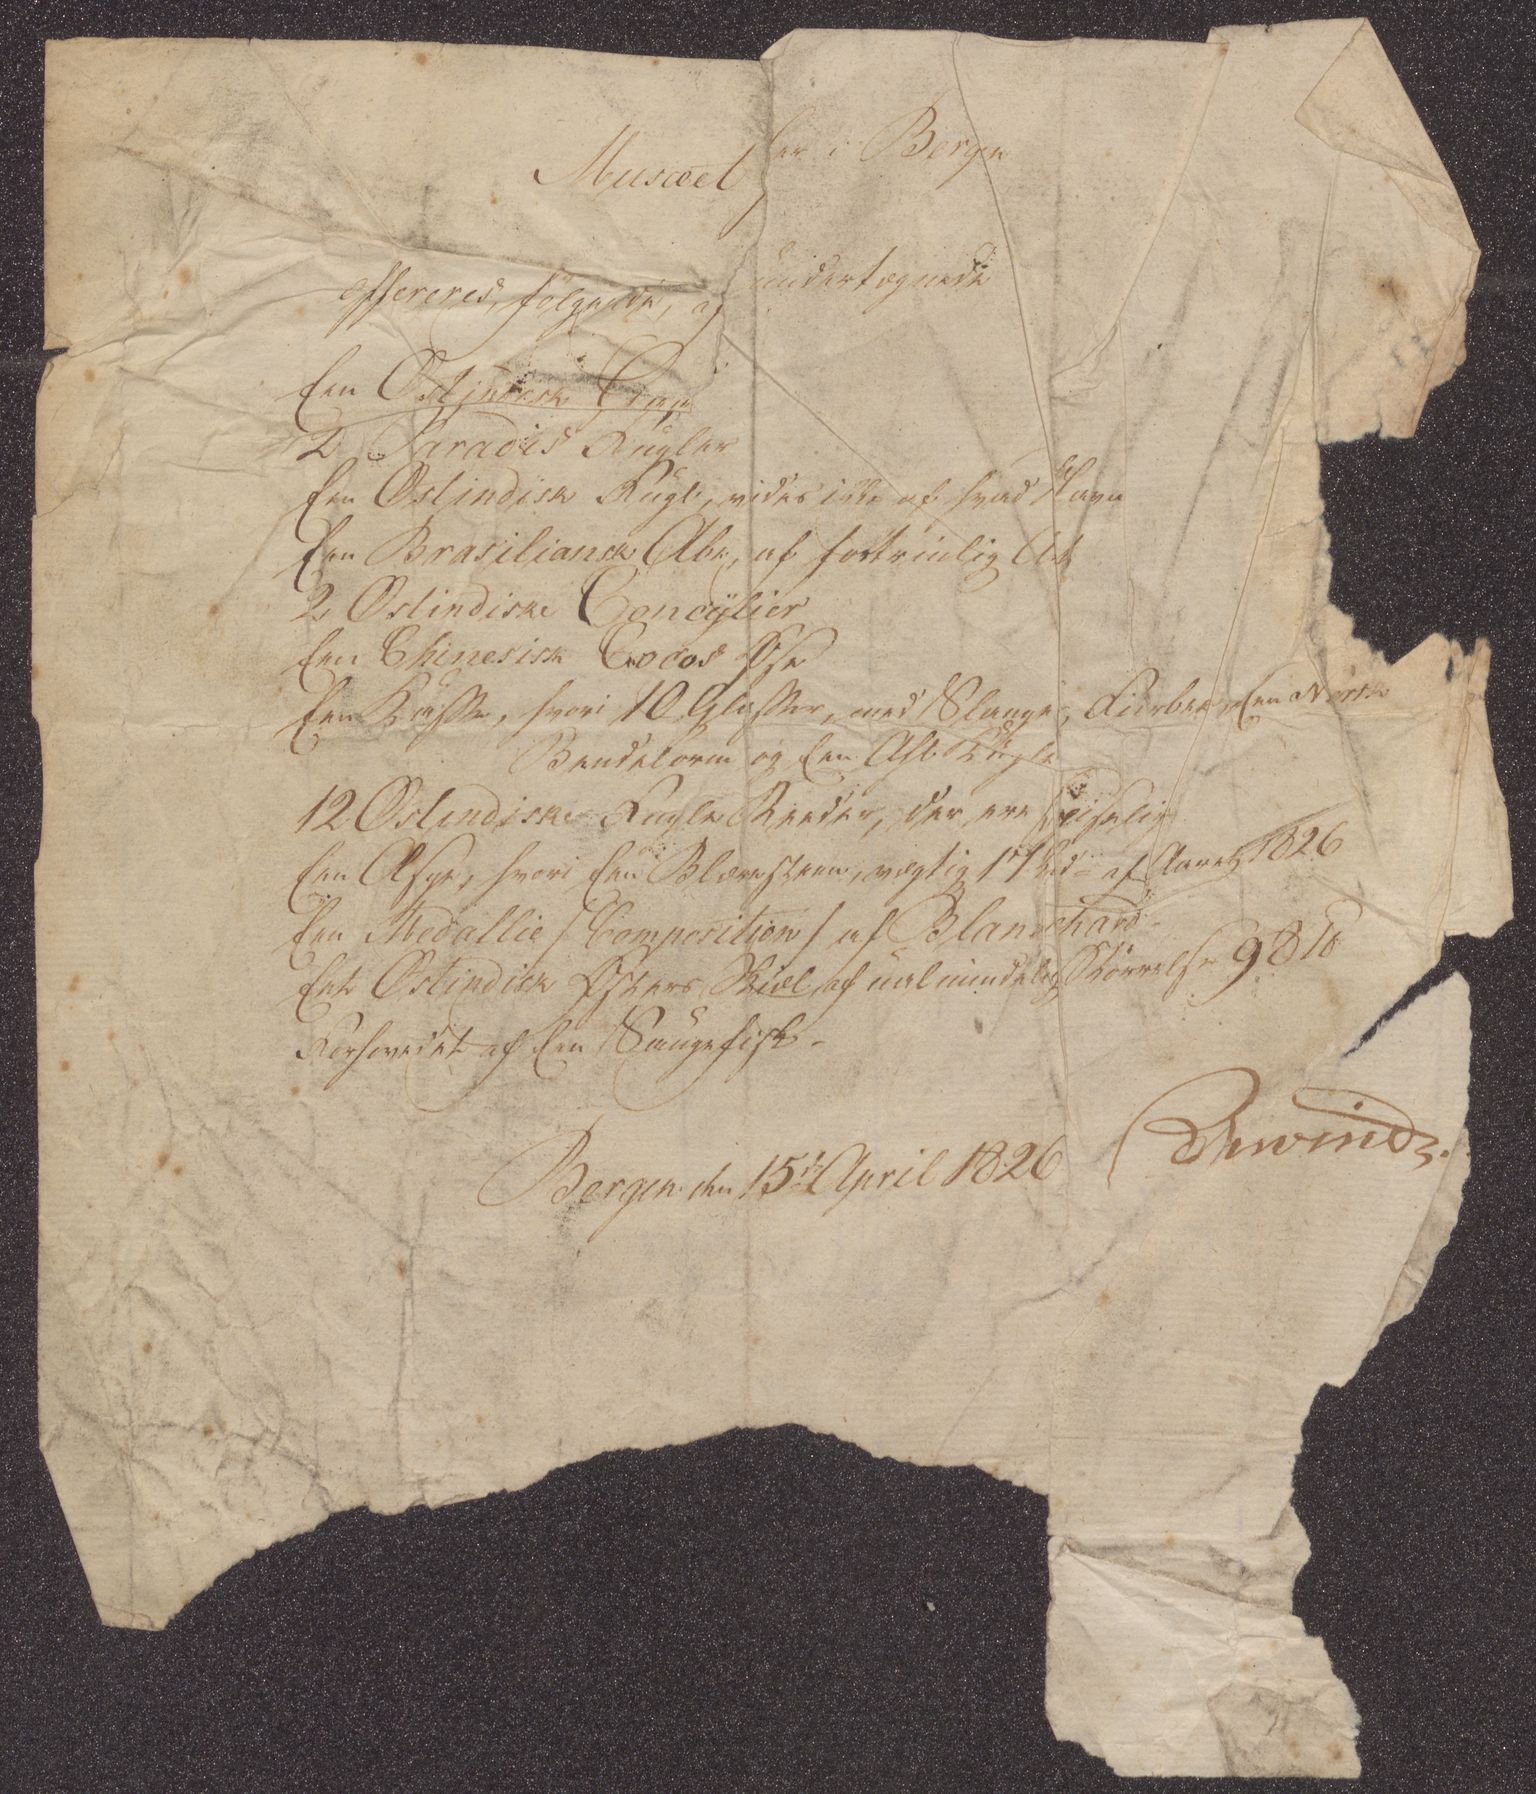 Musæet her i Bergen
offereres følgende, af undertegnede
Een Ostindisk
2 Paradis Fugler
Een Ostindisk Fugl, vides ikke af hvad Navn
Een Brasiliansk Abe, af fortrinlig Art
2 Ostindiske Concÿlier
Een Chinesisk Cocos
Een Kasse, hvori 10 Glasser, med Slanger, Fiirbeen, Een Norsk
Bendelorm og Een Fugle
12 Ostindiske Fugle Reeder, der ere spiselig
Een Æske, hvori Een Blæresteen, vægtig 17 af Aaret 1826
Een Medallie / Composition / af Blanchard
Eet Ostindisk Østers Skiæl af ualmindelig Størrelse 98 ℔
Forhovedet af Een Saugefisk.
Bergen den 15de April 1826